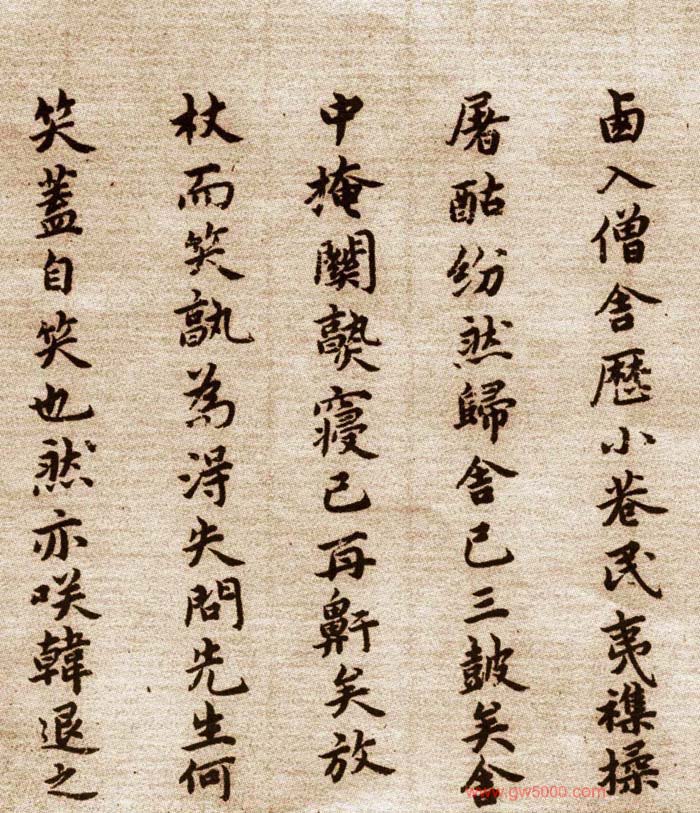 卤入僧舍歷小巷民夷襍揉
屠酤紛然歸舍已三鼓矣舍
中掩關熟寢已再鼾矣放
杖而笑孰為得失問先生何
笑蓋自笑也然亦咲韓退之
www.gw5000.com